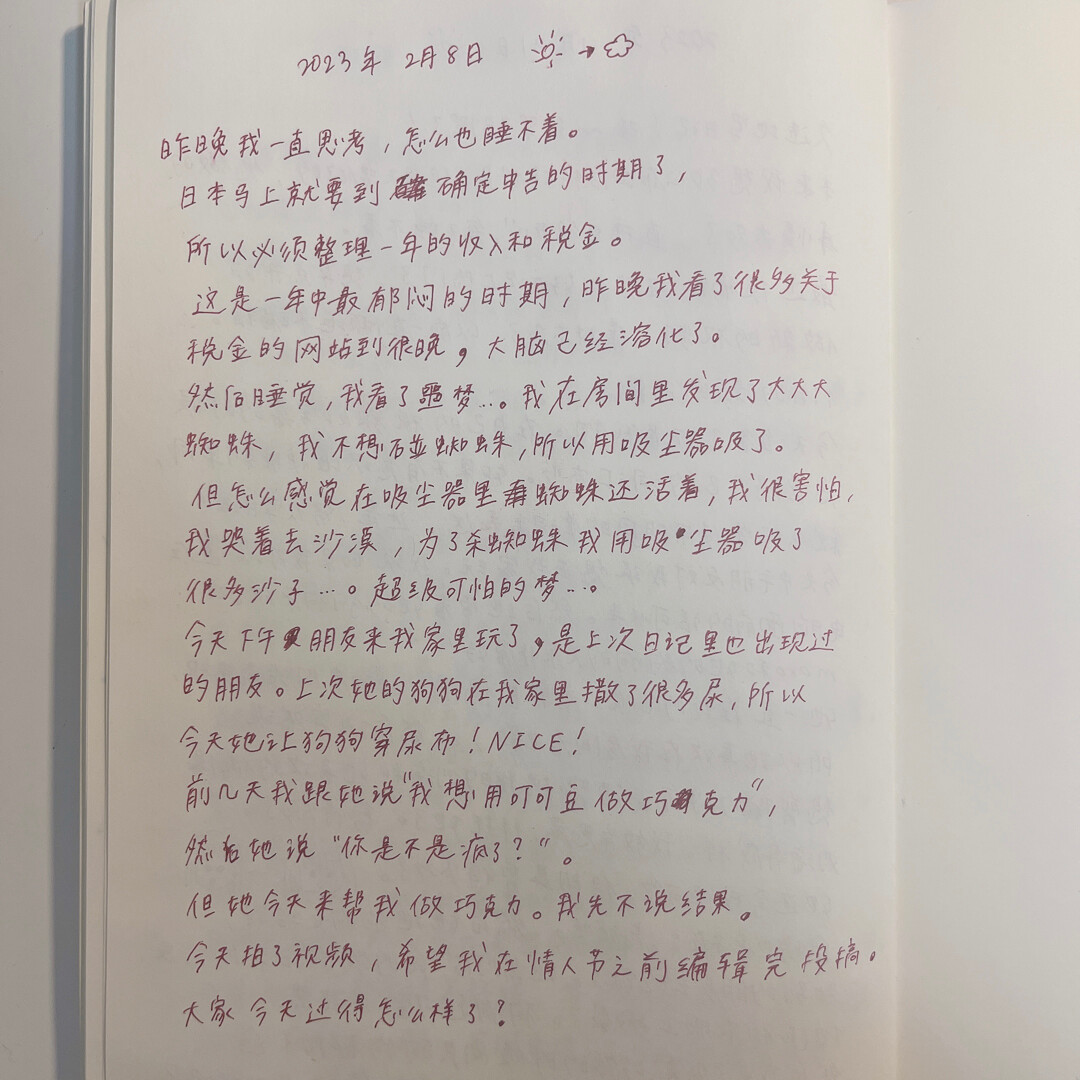 2023年 2月8日
昨晚我一直思考，怎么也睡不着。
日本马上就要到确定申告的时期了，
所以必须整理一年的收入和税金。
这是一年中最郁闷的时期，昨晚我看了很多关于
税金的网站到很晚，大脑已经溶化了。
然后睡觉，我看了噩梦…。我在房间里发现了大大大
蜘蛛，我不想碰蜘蛛，所以用吸尘器吸了。
但怎么感觉在吸尘器里蜘蛛还活着，我很害怕，
我哭着去沙漠，为了杀蜘蛛我用吸尘器吸了
很多沙子…。超级可怕的梦…。
今天下午朋友来我家里玩了，是上次日记里也出现过
的朋友。上次她的狗狗在我家里撒了很多尿，所以
今天她让狗狗穿尿布！NICE！
前几天我跟她说“我想用可可豆做巧克力”，
然后她说“你是不是疯了？”。
但她今天来帮我做巧克力。我先不说结果。
今天拍了视频，希望我在情人节之前编辑完投稿。
大家今天过得怎么样了？